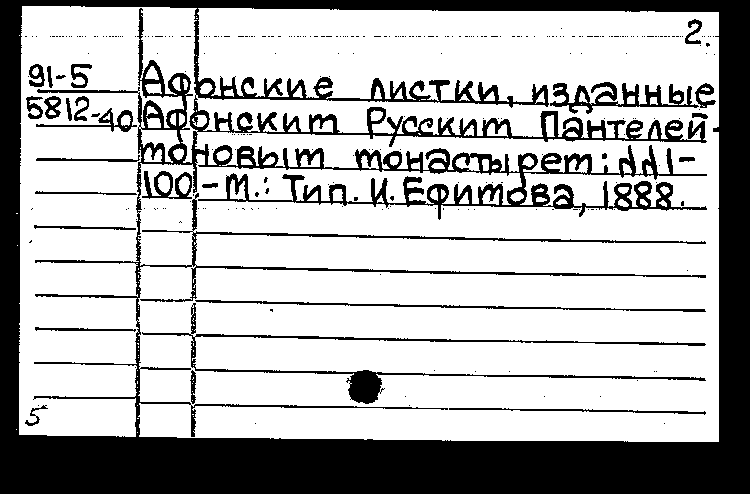 2.
91-5 Афонские листки, изданные
5812-40 Афонским Русским Пантелей-
моновым монастырем: №№1-
100.-М.: Тип. И. Ефимова, 1888.
5